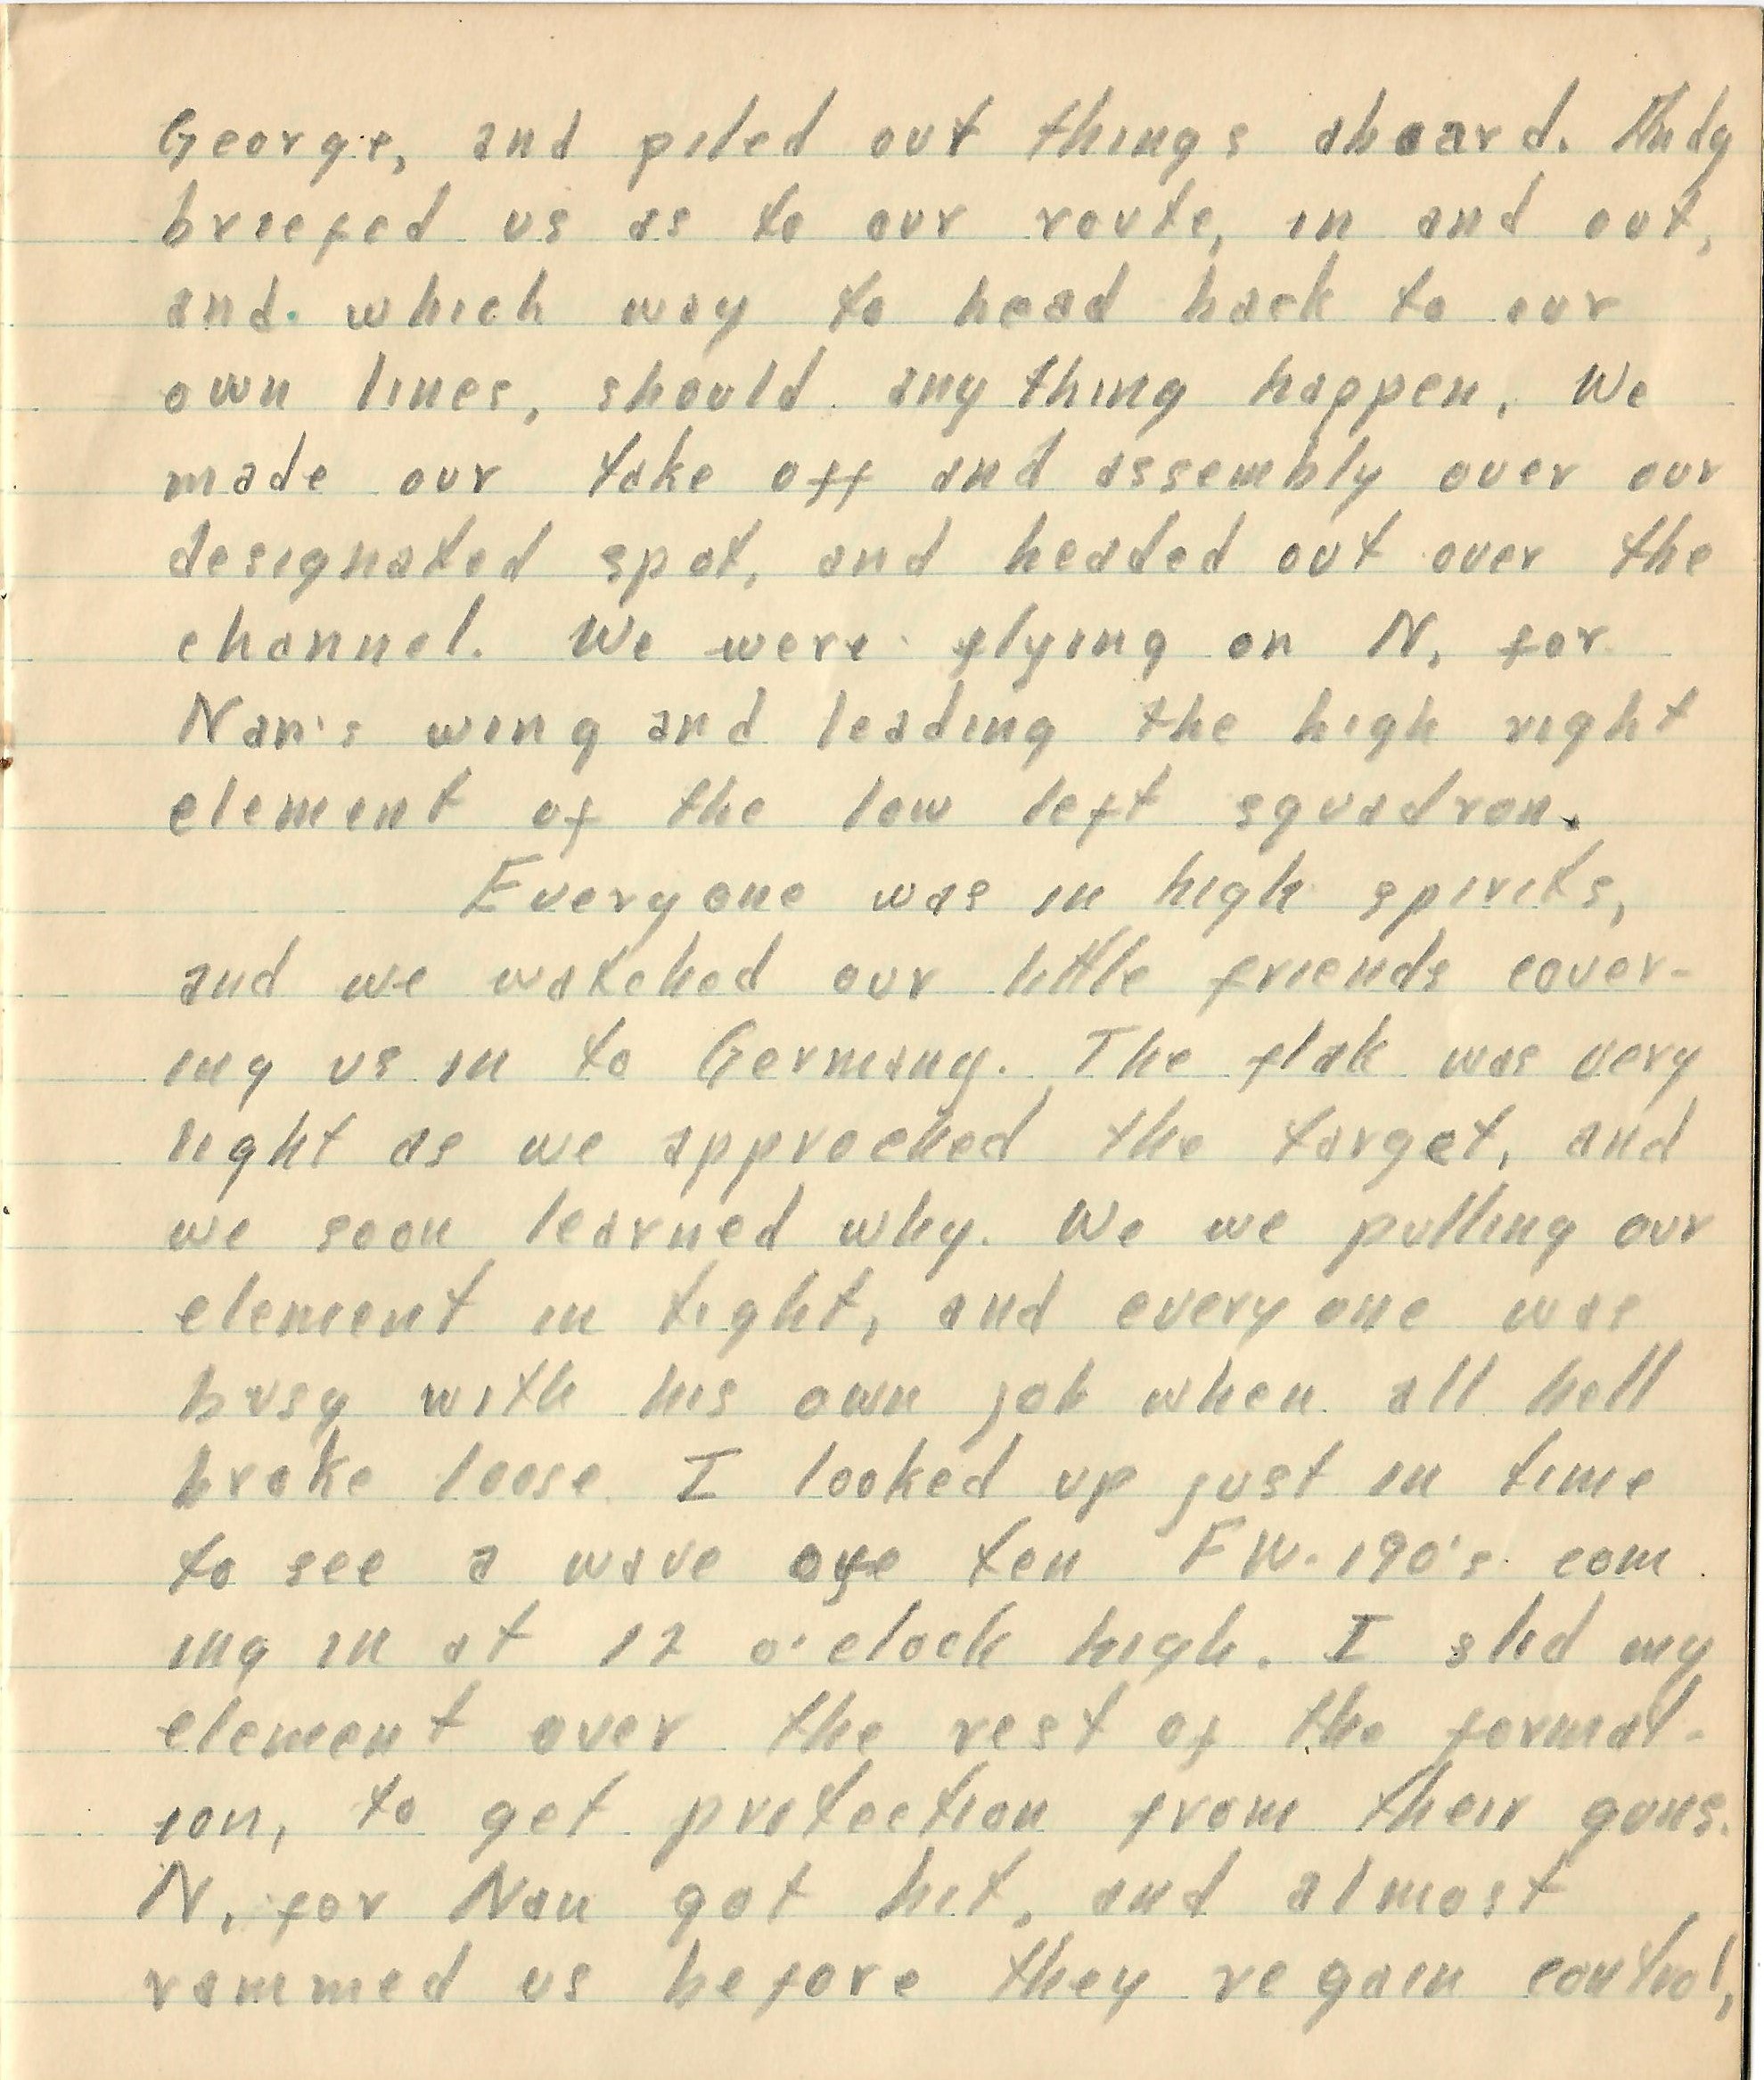 George, and piled out things aboard. Andy
briefed us as to our route, in and out,
and which way to head back to our
own lines, should any thing happen. We
made our take off and assembly over our
designated spot, and headed out over the
channel. We were flying on N, for
Nan's wing and leading the high right
element of the low left squadron.
Everyone was in high spirits,
and we watched our little friends cover-
ing us in to Germany. The flak was very
light as we approched the target, and
we soon learned why. We we pulling our
element in tight, and every one was
busy with his own job when all hell
broke loose. I looked up just in time
to see a wave of ten FW-190's com
ing in at 12 o'clock high. I slid my
element over the rest of the format-
ion, to get protection from their guns.
N, for Nan got hit, and almost
rammed us before they regain control,